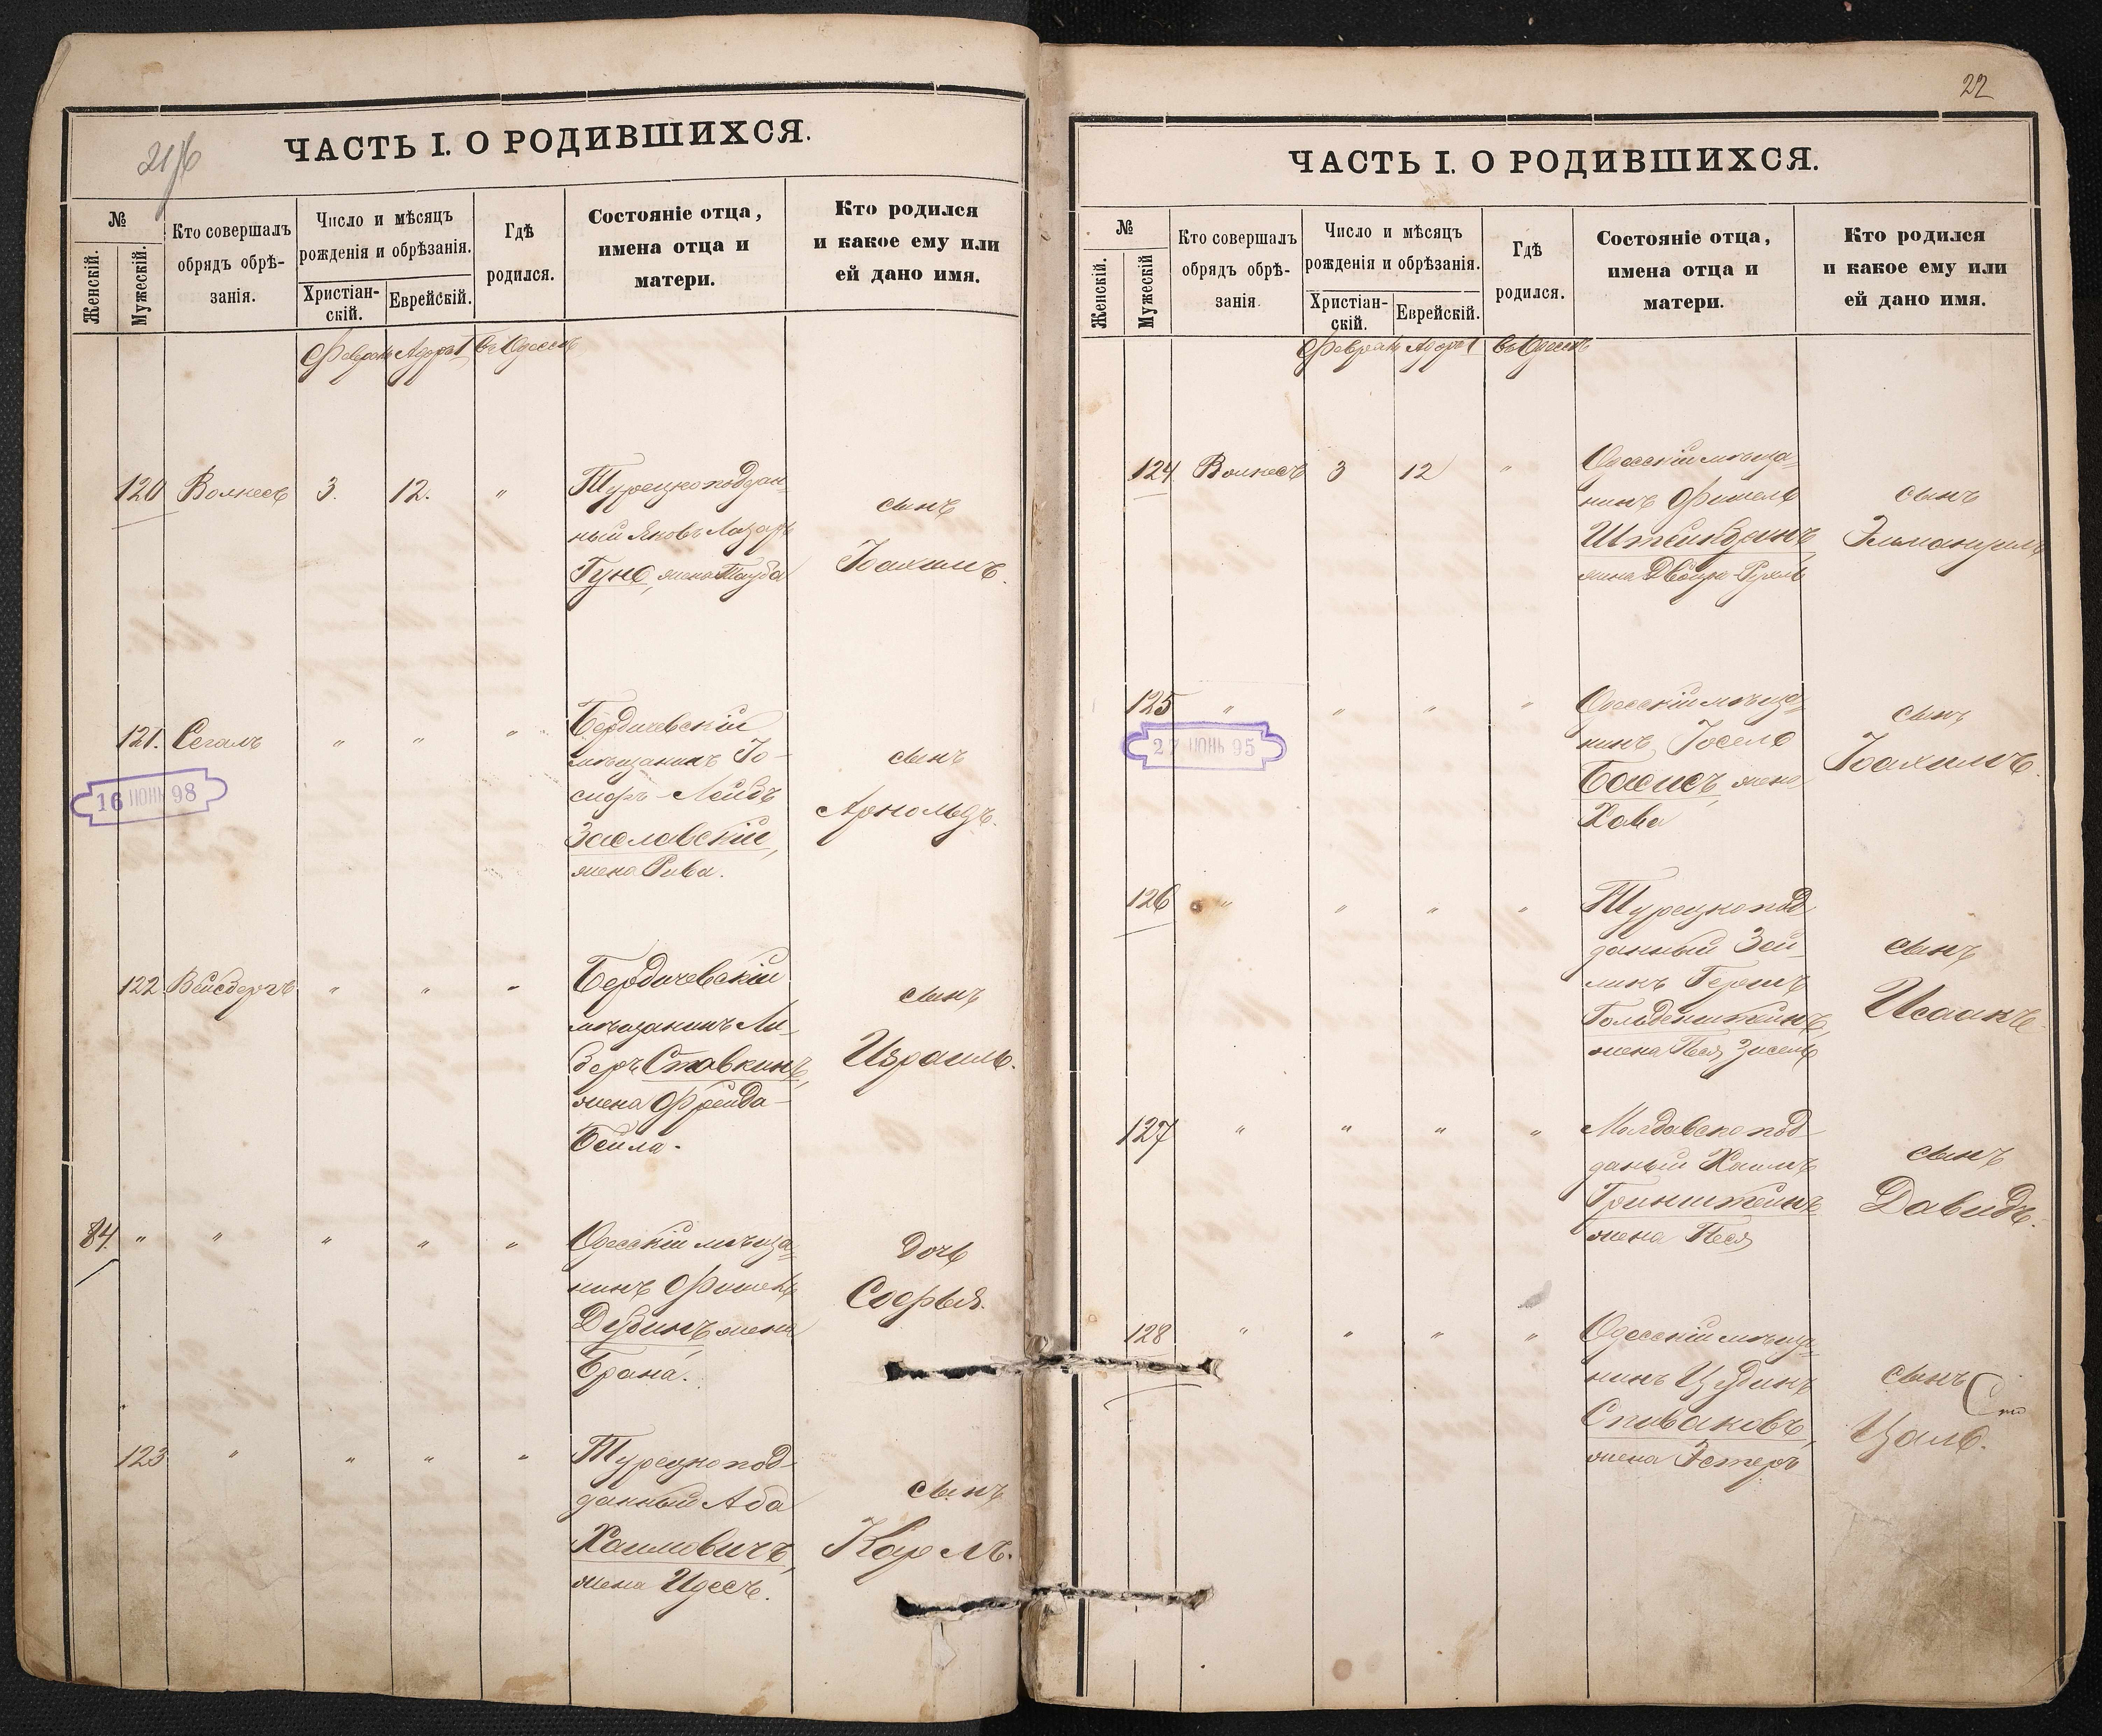 21/6
ЧАСТЬ I. О РОДИВШИХСЯ.
№
Женскій.
Мужескій.
Кто совершалъ
обрядъ обрѣ-
занія.
Число и мѣсяцъ
рожденія и обрѣзанія.
Христіан-
скій.
Еврейскій.
Гдѣ
родился.
Состояніе отца,
имена отца и
матери.
Кто родился
и какое ему или
ей дано имя.
Февраль Адаръ I въ Одессѣ
120 Волкесъ 3. 12. "
Турецкоподдан-
ный Яковъ Лазарь
жена Тауба
сынъ
Іоахимъ.
121. Сегалъ " " "
16 ІЮН 98
Бердичевскій
мѣщанинъ Іо-
сифъ-Лейбъ
Заславскій,
жена Рива.
сынъ
Арнольдъ.
122 Вейсбергъ " " "
Бердичевскій
мѣщанинъ Ли-
беръ Ставкинъ,
жена Фрейда-
Бейла.
сынъ
Израиль.
84. " " " " "
Одесскій мѣща-
нинъ Фишель
Дубинъ жена
Брана.
дочь
Софья.
123 " " " "
Турецкопод-
данный Аба
Хаимовичъ,
жена Идесъ.
сынъ
Карлъ.
22
ЧАСТЬ I. О РОДИВШИХСЯ.
№
Женскій.
Мужескій
Кто совершалъ
обрядъ обрѣ-
занія
Число и мѣсяцъ
рожденія и обрѣзанія.
Христіан-
скій.
Еврейскій.
Гдѣ
родился.
Состояніе отца,
имена отца и
матери.
Кто родился
и какое ему или
ей дано имя.
Февраль Адаръ I въ Одессѣ
124 Волкесъ 3 12 "
Одесскій мѣща-
нинъ Фишель
жена Двойра-Рухль
сынъ
125 " " " "
27 ІЮНЬ 95
Одесскій мѣща-
нинъ Іосель
Басисъ, жена
Хава
сынъ
Іоахимъ.
126 " " " "
Турецкопод-
данный Зей-
Гершъ
Гольденштейнъ,
жена Песя Зисель
сынъ
Исаакъ
127 " " " "
Молдавскопод-
даный Хаимъ
Гринштейнъ
жена Песя
сынъ
Давидъ.
128 " " " "
Одесскій мѣща-
нинъ
Спиваковъ,
жена Эстеръ
сынъ
Цаль.